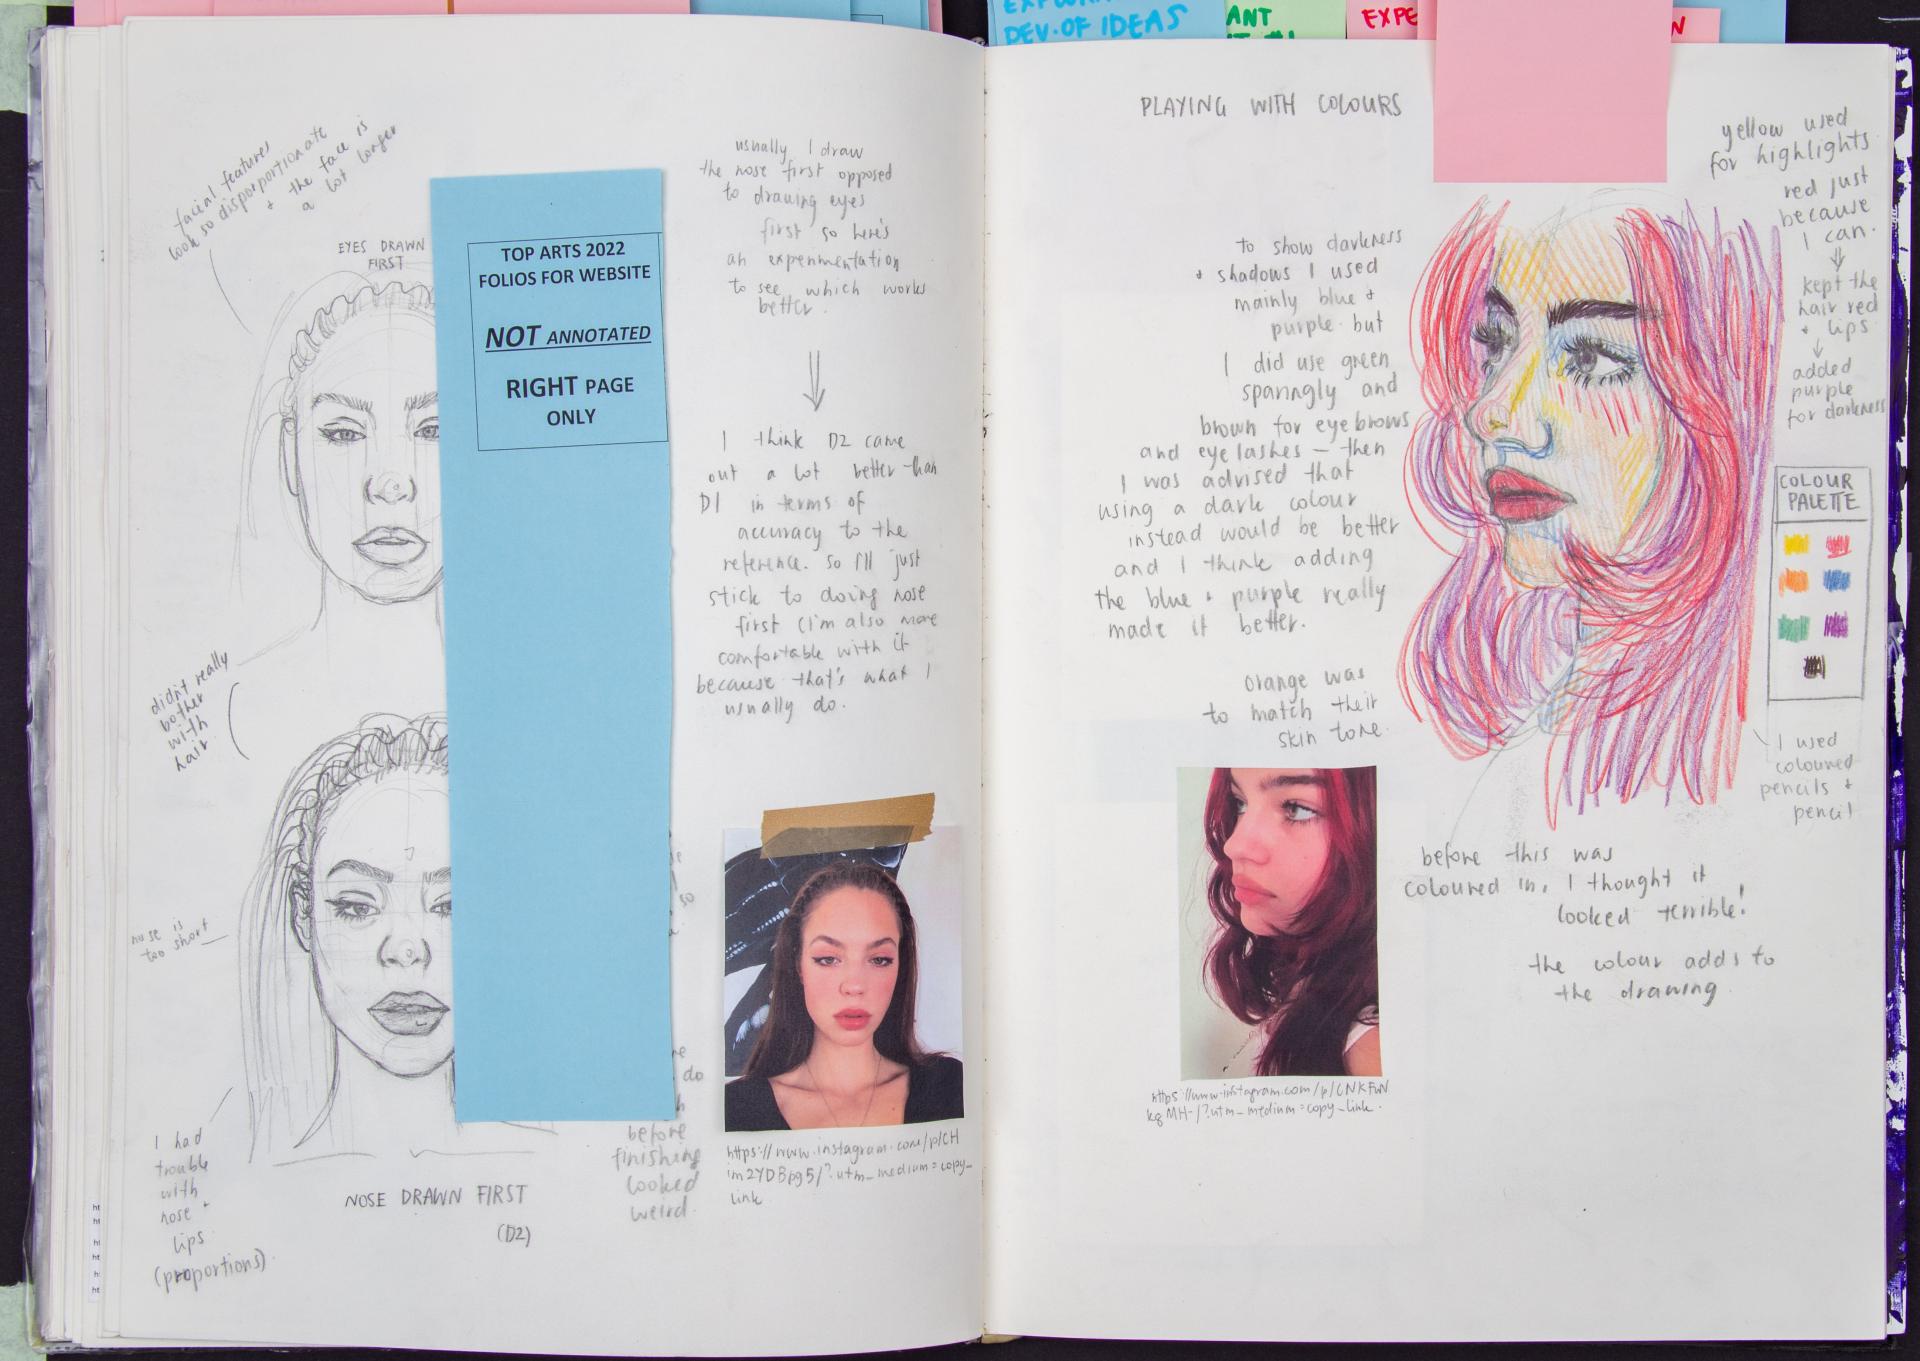 DEV. OF IDEAS
ANT
EXPE
facial features
look so disporportionate
+ the face is
a lot longer
EYES DRAWN
FIRST
TOP ARTS 2022
FOLIOS FOR WEBSITE
NOT ANNOTATED
RIGHT PAGE
ONLY
didn't really
bother
with
hair
nose is
too short
I had
trouble
with
nose +
lips
(proportions)
NOSE DRAWN FIRST
(D2)
usually I draw
the nose first opposed
to drawing eyes
first so here's
an experimentation
to see which works
better.
I think D2 came
out a lot better than
D1 in terms of
accuracy to the
reference. So I'll just
stick to doing nose
first (I'm also more
comfortable with it
because that's what I
usually do.
so
do
before
finishing
looked
weird.
https://www.instagram.com/p/CH
im2YDBpg5/?utm_medium=copy_
link
PLAYING WITH COLOURS
to show darkness
+ shadows I used
mainly blue +
purple. but
I did use green
sparingly and
brown for eyebrows
and eyelashes – then
I was advised that
using a dark colour
instead would be better
and I think adding
the blue + purple really
made it better.
orange was
to match their
skin tone.
https://www.instagram.com/p/CNKFwN
kgMH-/?utm_medium=copy_link.
yellow used
for highlights
red just
because
I can.
kept the
hair red
+ lips
added
purple
for darkness
COLOUR
PALETTE
I used
coloured
pencils +
pencil
before this was
coloured in, I thought it
looked terrible!
the colour adds to
the drawing